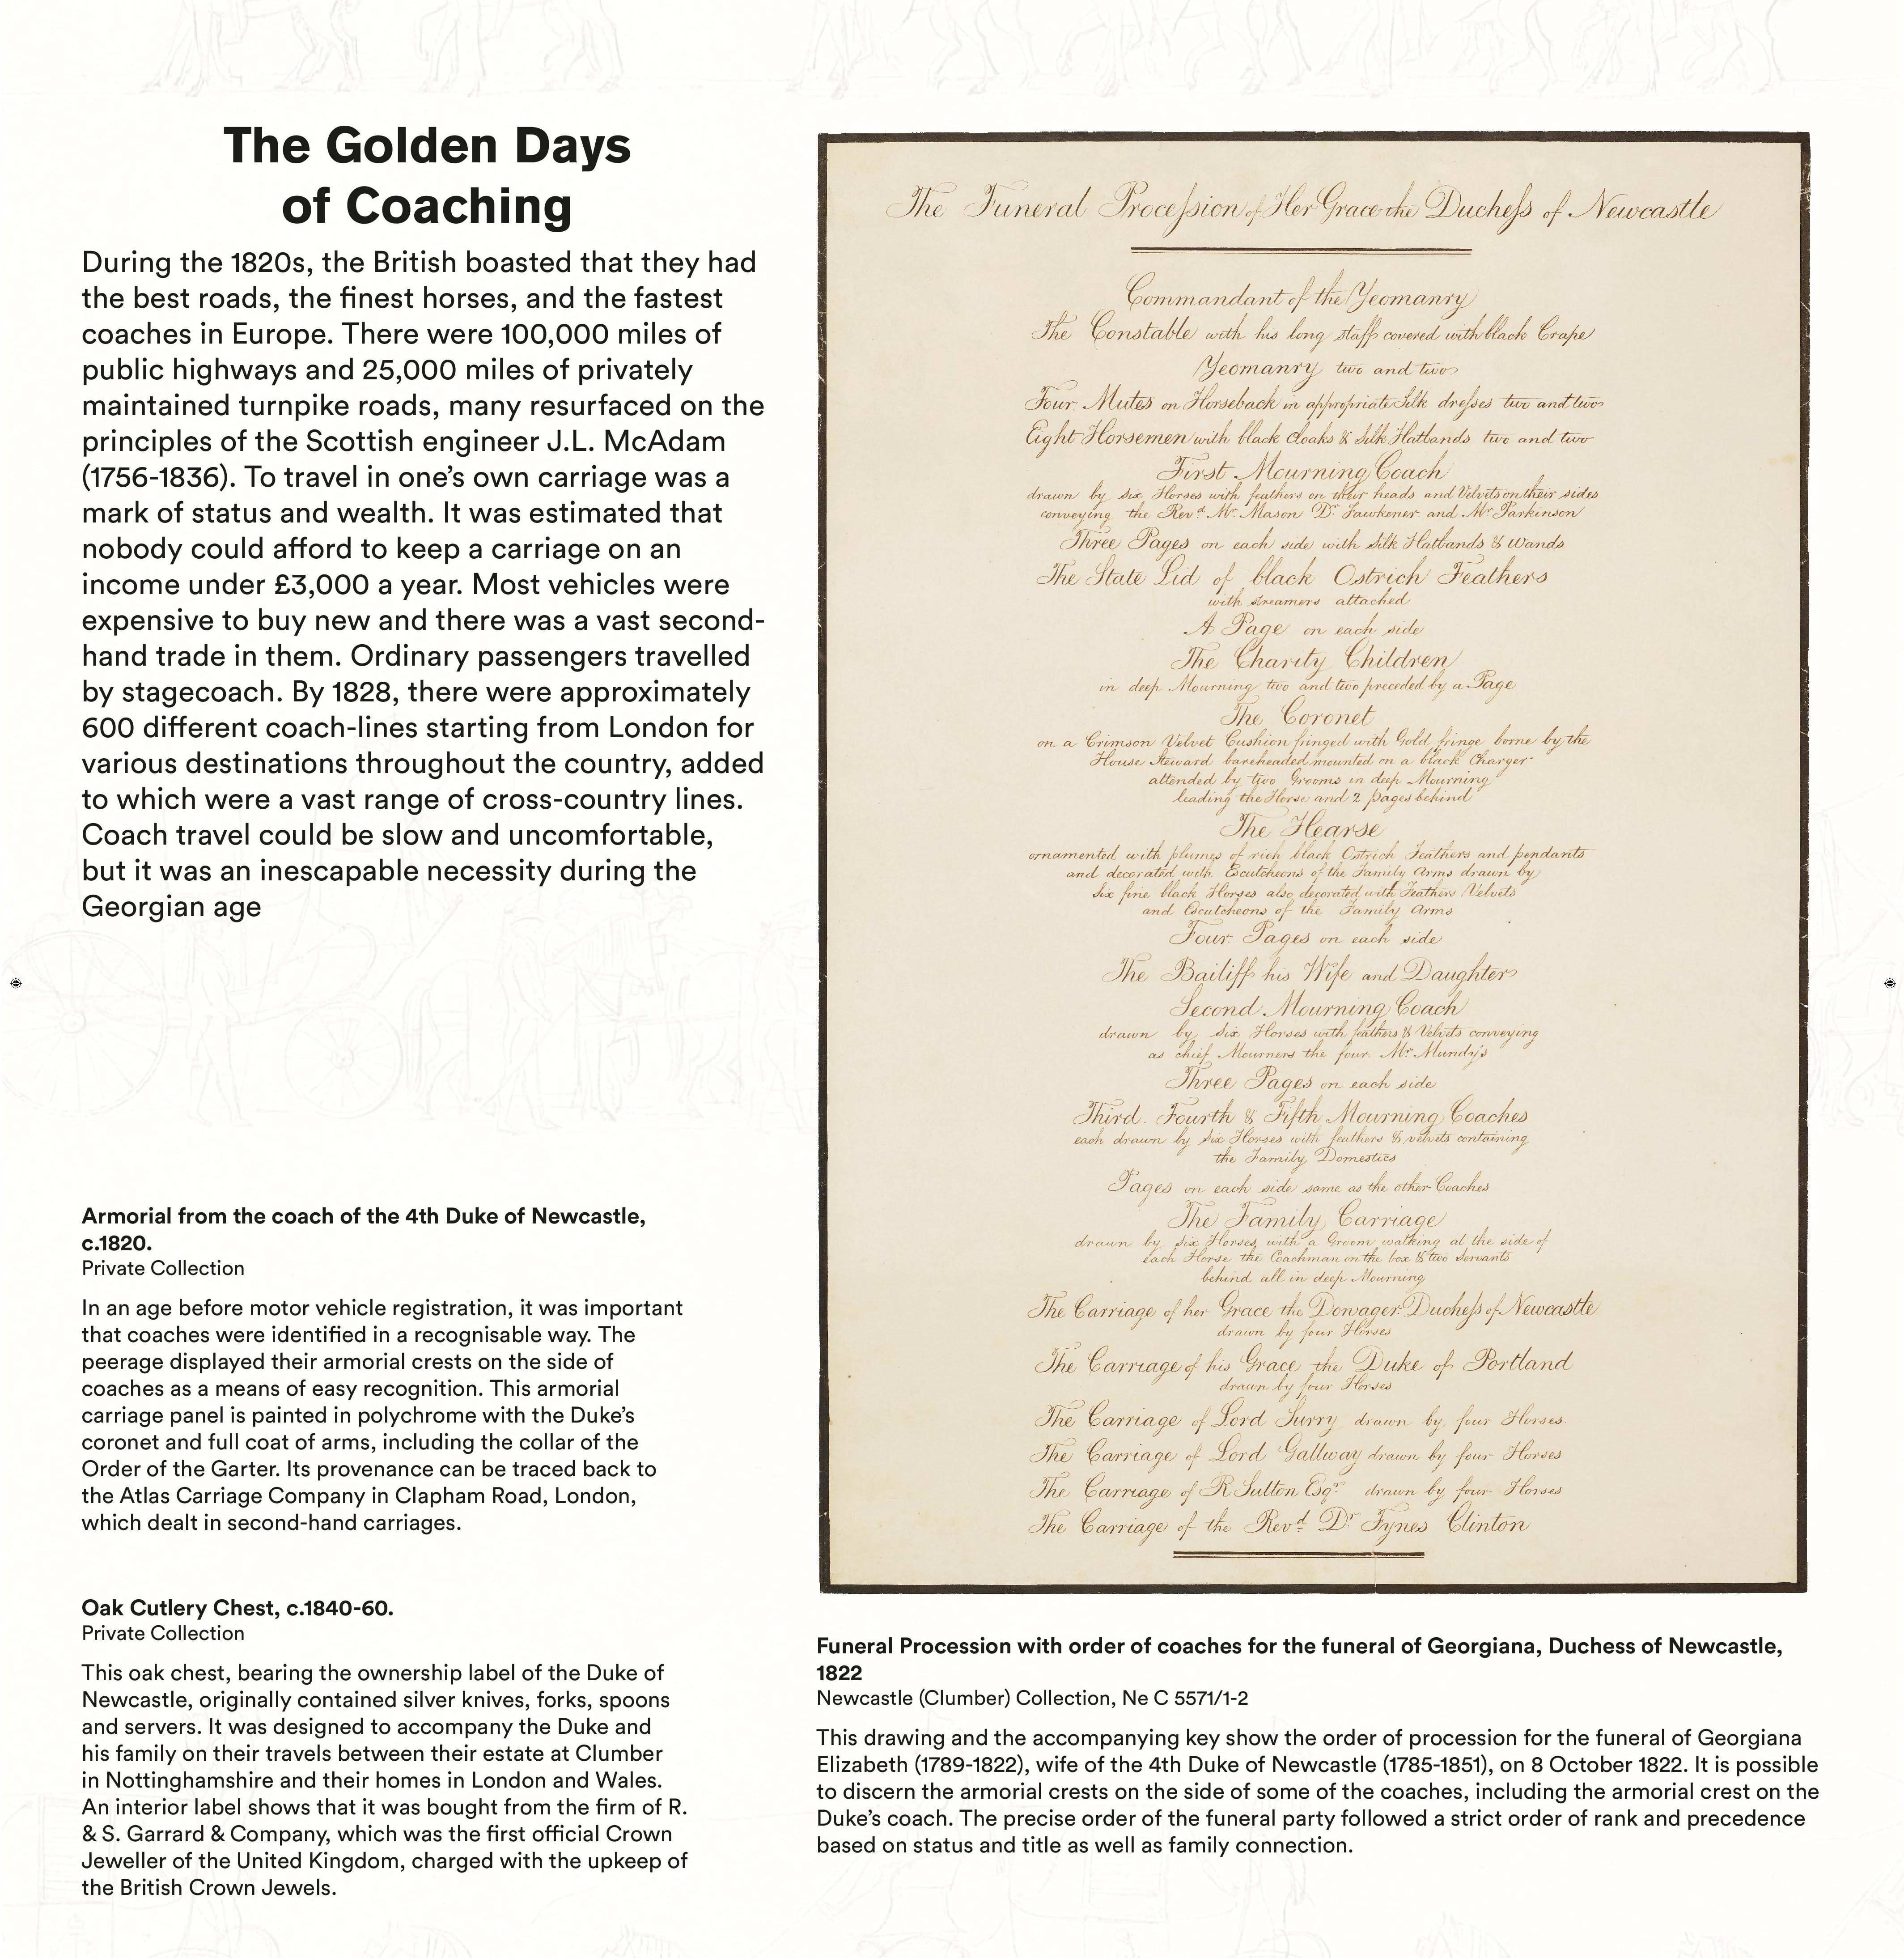 The Golden Days
of Coaching
During the 1820s, the British boasted that they had
the best roads, the finest horses, and the fastest
coaches in Europe. There were 100,000 miles of
public highways and 25,000 miles of privately
maintained turnpike roads, many resurfaced on the
principles of the Scottish engineer J.L. McAdam
(1756-1836). To travel in one’s own carriage was a
mark of status and wealth. It was estimated that
nobody could afford to keep a carriage on an
income under £3,000 a year. Most vehicles were
expensive to buy new and there was a vast second-
hand trade in them. Ordinary passengers travelled
by stagecoach. By 1828, there were approximately
600 different coach-lines starting from London for
various destinations throughout the country, added
to which were a vast range of cross-country lines.
Coach travel could be slow and uncomfortable,
but it was an inescapable necessity during the
Georgian age
Armorial from the coach of the 4th Duke of Newcastle,
c.1820.
Private Collection
In an age before motor vehicle registration, it was important
that coaches were identified in a recognisable way. The
peerage displayed their armorial crests on the side of
coaches as a means of easy recognition. This armorial
carriage panel is painted in polychrome with the Duke’s
coronet and full coat of arms, including the collar of the
Order of the Garter. Its provenance can be traced back to
the Atlas Carriage Company in Clapham Road, London,
which dealt in second-hand carriages.
Oak Cutlery Chest, c.1840-60.
Private Collection
This oak chest, bearing the ownership label of the Duke of
Newcastle, originally contained silver knives, forks, spoons
and servers. It was designed to accompany the Duke and
his family on their travels between their estate at Clumber
in Nottinghamshire and their homes in London and Wales.
An interior label shows that it was bought from the firm of R.
& S. Garrard & Company, which was the first official Crown
Jeweller of the United Kingdom, charged with the upkeep of
the British Crown Jewels.
The Funeral Proceſsion of Her Grace the Ducheſs of Newcastle
Commandant of the Yeomanry
The Constable with his long staff covered with black Crape
Yeomanry two and two
Four Mutes on Horseback in appropriate Silk dreſses two and two
Eight Horsemen with black cloaks & Silk Hatbands two and two
First Mourning Coach
drawn by six Horses with feathers on their heads and Velvets on their sides
conveying the Revd. Mr. Mason Dr. Fawkener and Mr. Parkinson
Three Pages on each side with Silk Hatbands & Wands
The State Lid of black Ostrich Feathers
with streamers attached
A Page on each side
The Charity Children
in deep Mourning two and two preceded by a Page
The Coronet
on a Crimson Velvet Cushion fringed with Gold fringe borne by the
House Steward bareheaded mounted on a black Charger
attended by two Grooms in deep Mourning
leading the Horse and 2 pages behind
The Hearse
ornamented with plumes of rich black Ostrich Feathers and pendants
and decorated with Escutcheons of the Family Arms drawn by
Six fine black Horses also decorated with Feathers Velvets
and Escutcheons of the Family Arms
Four Pages on each side
The Bailiff his Wife and Daughter
Second Mourning Coach
drawn by six Horses with feathers & Velvets conveying
as chief Mourners the four Mr. Mundy's
Three Pages on each side
Third Fourth & Fifth Mourning Coaches
each drawn by six Horses with feathers & velvets containing
the Family Domestics
Pages on each side same as the other Coaches
The Family Carriage
drawn by six Horses, with a Groom walking at the side of
each Horse the Coachman on the box & two Servants
behind all in deep Mourning
The Carriage of her Grace the Dowager Ducheſs of Newcastle
drawn by four Horses
The Carriage of his Grace the Duke of Portland
drawn by four Horses
The Carriage of Lord Surry drawn by four Horses
The Carriage of Lord Gallway drawn by four Horses
The Carriage of R Sutton Esqr. drawn by four Horses
The Carriage of the Revd. Dr. Fynes Clinton
Funeral Procession with order of coaches for the funeral of Georgiana, Duchess of Newcastle,
1822
Newcastle (Clumber) Collection, Ne C 5571/1-2
This drawing and the accompanying key show the order of procession for the funeral of Georgiana
Elizabeth (1789-1822), wife of the 4th Duke of Newcastle (1785-1851), on 8 October 1822. It is possible
to discern the armorial crests on the side of some of the coaches, including the armorial crest on the
Duke’s coach. The precise order of the funeral party followed a strict order of rank and precedence
based on status and title as well as family connection.